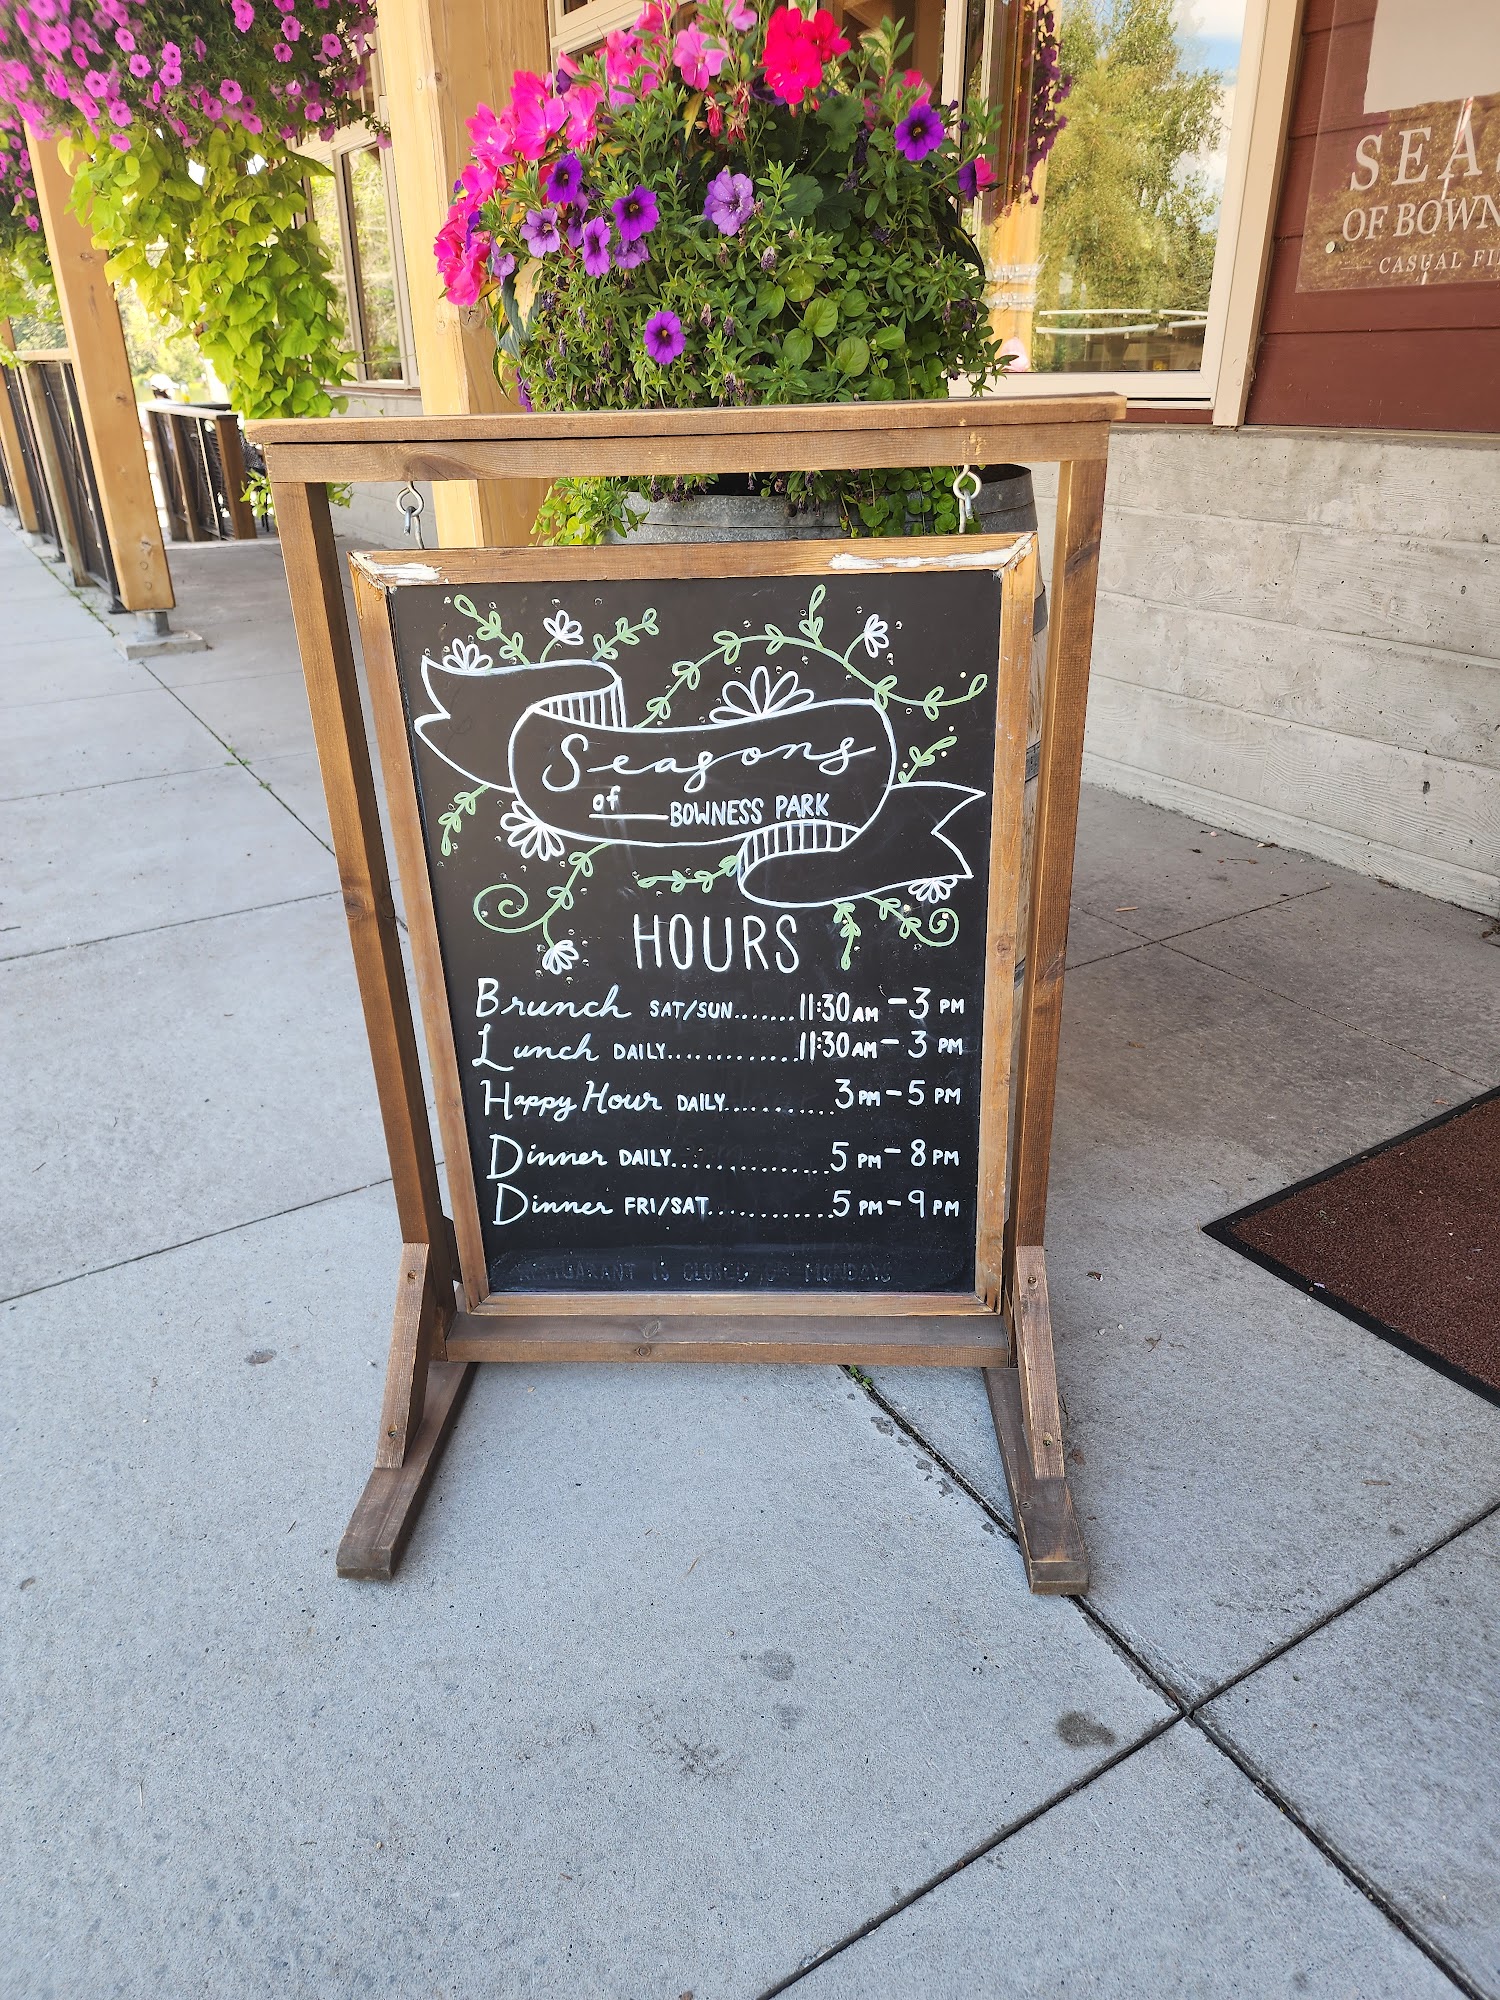 SEA
OF BOWN
CASUAL FI
Seasons
of BOWNESS PARK
HOURS
Brunch SAT/SUN.......11:30AM - 3 PM
Lunch DAILY.............11:30AM - 3 PM
Happy Hour DAILY...........3PM - 5 PM
Dinner DAILY...............5 PM - 8 PM
Dinner FRI/SAT............5 PM - 9 PM
RESTAURANT IS CLOSED ON MONDAYS